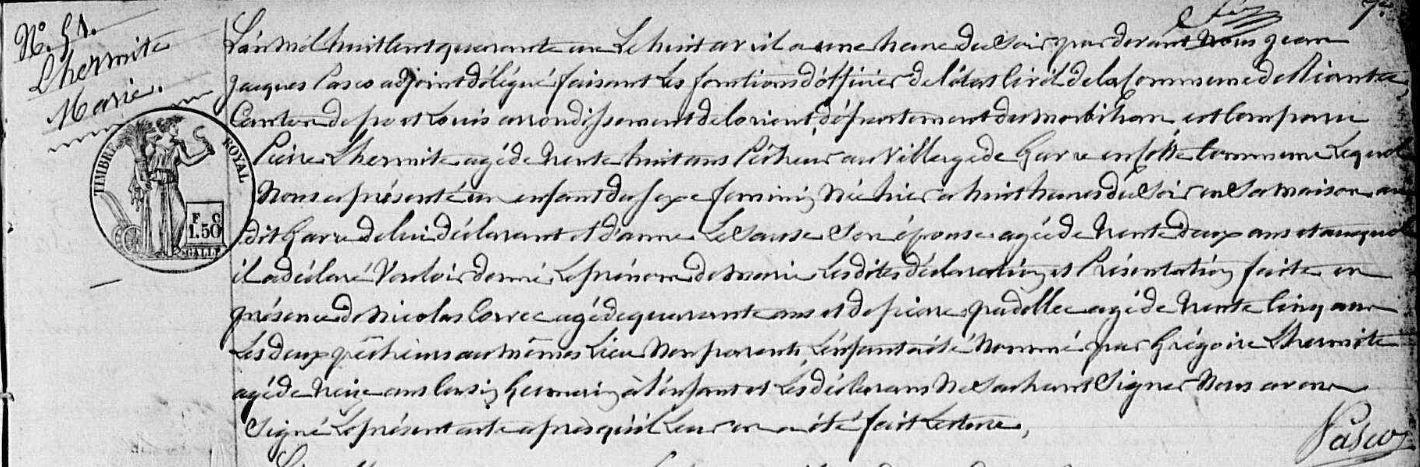 N°. 51.
Lhermite
Marie.
TIMBRE ROYAL
F C
1.50
7e
L'an mil huit cent quarante un Le huit avril a une heure du Soir, par devant Nous jean
jacques Pasco adjoint délégué faisant Les fonctions d'officier de l'état Civil de la Commune de Riantec
Canton de port Louis arrondissement de lorient, département du morbihan est Comparu
Pierre Lhermite agé de trente huit ans Pêcheur au Village de Gavre en Cette Commune Lequel
Nous a présenté un enfant du Sexe feminin Né hier à huit heures du Soir en Sa maison au
dit Gavre de lui déclarant et d'anne Le Sausse Son épouse agée de trente deux ans et auquel
il a déclaré Vouloir donné Le prénom de marie Les dites déclaration et Présentation faite en
présence de Nicolas Correc agé de quarante ans et de pierre agé de trente Cinq ans
Les deux pêcheurs au même Lieu Non parents, L'enfant a été Nommé par Grégoire Lhermite
agé de ans Cousin Germain à L'enfant et Les déclarans Ne Sachant Signer Nous avons
Signé Le présent acte après qu'il Leur en a été fait Lecture,
Pasco